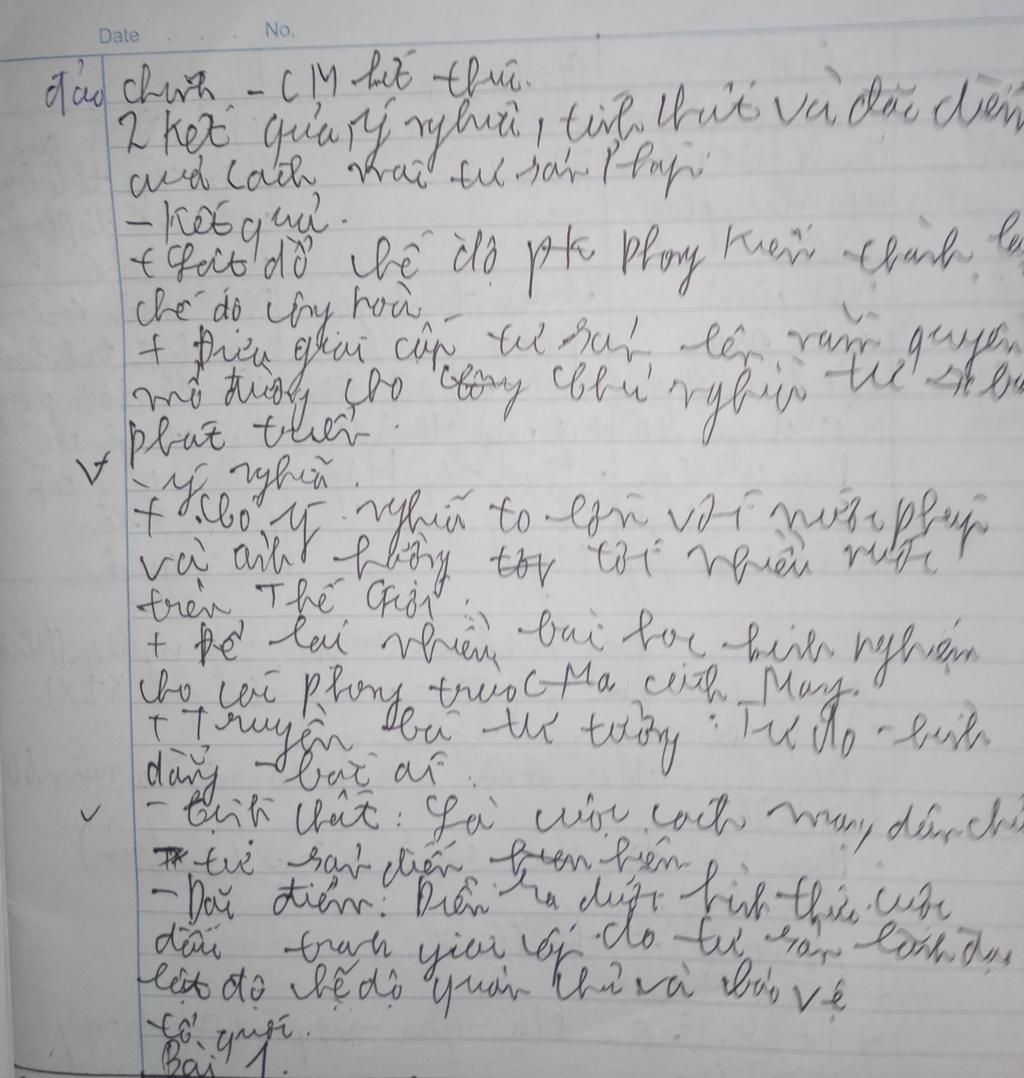 Date . . . No.
đảo chính - CM kết thúc.
2 Kết quả, ý nghĩa, tính chất và đặc điểm
cuả cách mại tư sản Pháp:
- Kết quả.
+ Lật đổ chế độ pk phong kiến thành lập
chế độ cộng hoà
+ Đưa giai cấp tư sản lên nắm quyền
mở đường cho chủ nghĩa tư sản
phát triển.
- ý nghĩa.
+ Có ý nghĩa to lớn với nước pháp
và ảnh hưởng tới nhiều nước
trên Thế Giới.
+ Để lại nhiều bài học kinh nghiệm
cho các phong trào cách Mạng.
+ Truyền bá tư tưởng: Tự do - bình
đẳng - bác ái.
- tính chất: Là cuộc cách mạng dân chủ
tư sản điển hình
- Đặc điểm: Diễn ra dưới hình thức cuộc
đấu tranh giai cấp do tư sản lãnh đạo
lật độ chế độ quân chủ và bảo vệ
tổ quốc.
Bài 1.